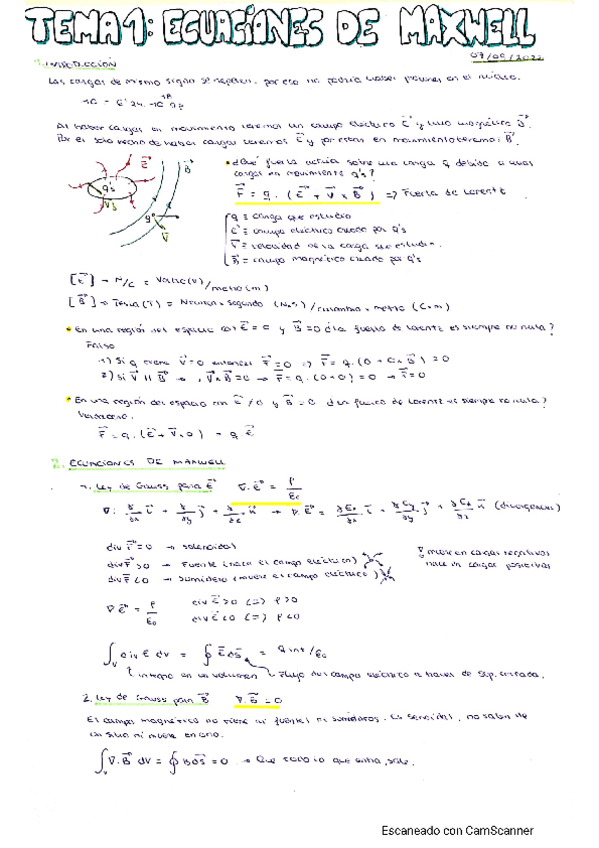 TEMA 1: ECUACIONES DE MAXWELL
07/09/2022
1. INTRODUCCIÓN
Las cargas de mismo signo se repelen, por eso no podría haber protones en el núcleo.
Al haber cargas en movimiento tenemos un campo eléctrico E⃗ y uno magnético B⃗.
Por el solo hecho de haber cargas tenemos E⃗ y por estar en movimiento tenemos B⃗.
E⃗ B⃗
q's
q
V⃗
• ¿Qué fuerza actúa sobre una carga q debido a unas
cargas en movimiento q's?
F⃗ = q · (E⃗ + V⃗ x B⃗) => Fuerza de Lorentz
q = carga que estudio
E⃗ = campo eléctrico creado por q's
V⃗ = velocidad de la carga que estudio.
B⃗ = campo magnético creado por q's
[E⃗] → N/C = Voltio (V) / metro (m)
[B⃗] → Tesla (T) = Newton · segundo (N·s) / culombio · metro (C·m)
• En una región del espacio con E⃗ = 0 y B⃗ ≠ 0 ¿la fuerza de Lorentz es siempre no nula?
Falso
1) Si q v⃗ = 0 entonces F⃗ = 0 => F⃗ = q · (0 + 0 x B⃗) = 0
2) Si V⃗ || B⃗ → V⃗ x B⃗ = 0 → F⃗ = q · (0+0) = 0 → F⃗ = 0
• En una región del espacio con E⃗ ≠ 0 y B⃗ = 0 ¿la fuerza de Lorentz es siempre no nula?
Verdadero.
F⃗ = q · (E⃗ + V⃗ x 0) = q E⃗
2. ECUACIONES DE MAXWELL
1. Ley de Gauss para E⃗ ∇ · E⃗ = ρ/ε₀
(divergencia)
div F⃗ = 0 → solenoidal
div F⃗ > 0 → Fuente (nace el campo eléctrico)
div F⃗ < 0 → Sumidero (muere el campo eléctrico)
muere en cargas negativas
nace en cargas positivas
∇ E⃗ = ρ/ε₀
div E⃗ > 0 (=) ρ > 0
div E⃗ < 0 (=) ρ < 0
∫v div E dv = ∮ E⃗ dS⃗ = Q int / ε₀
integro en un volumen
Flujo del campo eléctrico a través de sup. cerrada.
2. Ley de Gauss para B⃗ ∇ · B⃗ = 0
El campo magnético no tiene ni fuentes ni sumideros. no salen de
un sitio ni muere en otro.
∫v ∇ · B⃗ dv = ∮ B dS⃗ = 0 → Que todo lo que entra, sale.
Escaneado con CamScanner